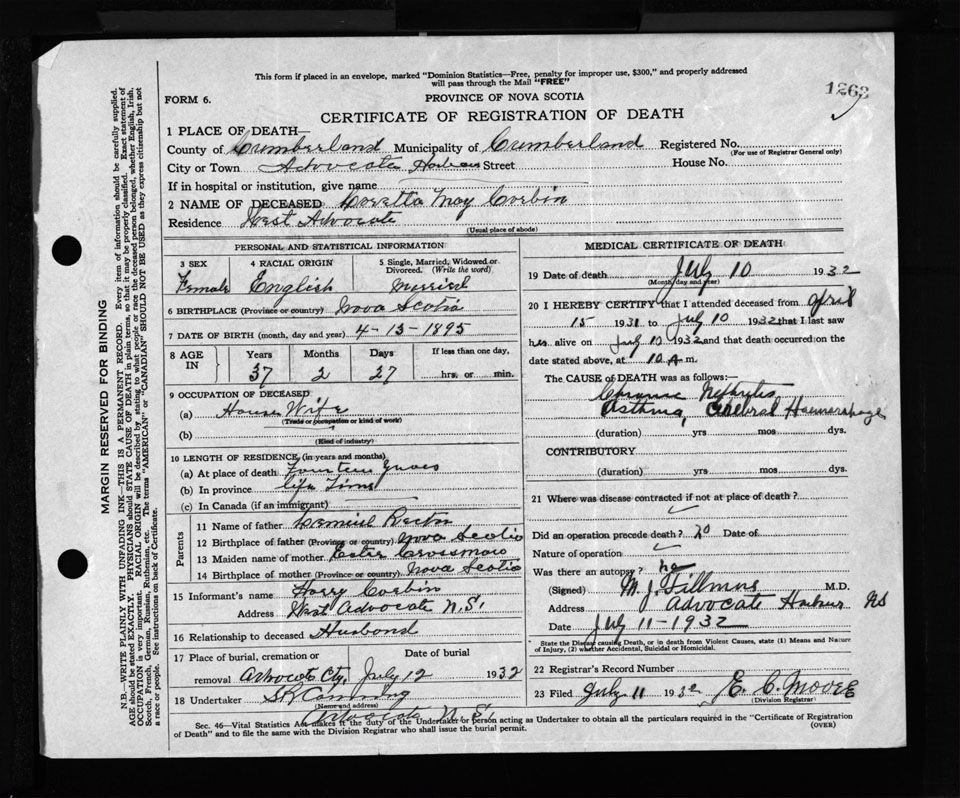 This form if placed in an envelope, marked "Dominion Statistics—Free, penalty for improper use, $300," and properly addressed
will pass through the Mail "FREE"
1263
FORM 6.
PROVINCE OF NOVA SCOTIA
CERTIFICATE OF REGISTRATION OF DEATH
1 PLACE OF DEATH—
County of Cumberland Municipality of Cumberland Registered No.
(For use of Registrar General only)
City or Town Advocate Harbour Street House No.
If in hospital or institution, give name
2 NAME OF DECEASED Loretta May Corbin
Residence West Advocate
(Usual place of abode)
PERSONAL AND STATISTICAL INFORMATION
3 SEX 4 RACIAL ORIGIN 5 Single, Married, Widowed or
Divorced. (Write the word)
Female English Married
6 BIRTHPLACE (Province or country) Nova Scotia
7 DATE OF BIRTH (month, day and year) 4-13-1895
8 AGE IN Years Months Days If less than one day,
37 2 27 hrs. or min.
9 OCCUPATION OF DECEASED
(a) House Wife
(Trade or occupation or kind of work)
(b)
(Kind of industry)
10 LENGTH OF RESIDENCE (in years and months)
(a) At place of death Fourteen years
(b) In province life Time
(c) In Canada (if an immigrant)
Parents
11 Name of father
12 Birthplace of father (Province or country) Nova Scotia
13 Maiden name of mother Ester
14 Birthplace of mother (Province or country) Nova Scotia
15 Informant's name Harry Corbin
Address West Advocate N.S.
16 Relationship to deceased Husband
17 Place of burial, cremation or Date of burial
removal Advocate Cty. July 12 1932
18 Undertaker
(Name and address)
Advocate N.S.
MEDICAL CERTIFICATE OF DEATH
19 Date of death July 10 1932
(Month, day and year)
20 I HEREBY CERTIFY that I attended deceased from April
15 1931 to July 10 1932 that I last saw
her alive on July 10 1932 and that death occurred on
date stated above, at 10 A m.
The CAUSE OF DEATH was as follows:—
Chronic Nephritis
Asthma, Cerebral Haemorrhage
(duration) yrs mos dys.
CONTRIBUTORY
(duration) yrs mos dys.
21 Where was disease contracted if not at place of death?
Did an operation precede death? no Date of
Nature of operation
Was there an autopsy? no
(Signed) M. J. Fillmore M.D.
Address Advocate Harbour NS
Date July 11-1932
* State the Disease causing Death, or in death from Violent Causes, state (1) Means and Nature
of Injury, (2) whether Accidental, Suicidal or Homicidal.
22 Registrar's Record Number
23 Filed July 11 1932 E. C. Moore
(Division Registrar)
Sec. 46—Vital Statistics Act makes it the duty of the Undertaker or person acting as Undertaker to obtain all the particulars required in the "Certificate of Registration
of Death" and to file the same with the Division Registrar who shall issue the burial permit.
(OVER)
MARGIN RESERVED FOR BINDING
N.B.—WRITE PLAINLY WITH UNFADING INK—THIS IS A PERMANENT RECORD. Every item of information should be carefully supplied.
AGE should be stated EXACTLY. PHYSICIANS should STATE CAUSE OF DEATH in plain terms, so that it may be properly classified. Exact statement of
OCCUPATION is very important. RACIAL ORIGIN will be described by stating to what people or race the deceased person belonged, whether English, Irish,
Scotch, French, German, Russian, Ruthenian, etc. The terms "AMERICAN" or "CANADIAN" SHOULD NOT BE USED as they express citizenship but not
a race or people. See instructions on back of Certificate.